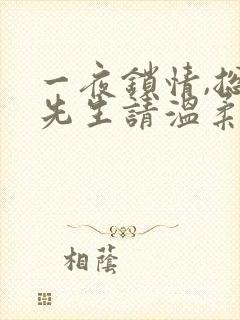 一夜鎖情,總
先生請溫柔
相蔭